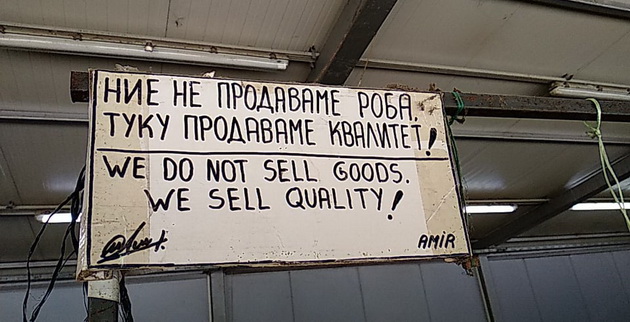 НИЕ НЕ ПРОДАВАМЕ РОБА,
ТУКУ ПРОДАВАМЕ КВАЛИТЕТ!
WE DO NOT SELL GOODS.
WE SELL QUALITY!
AMIR